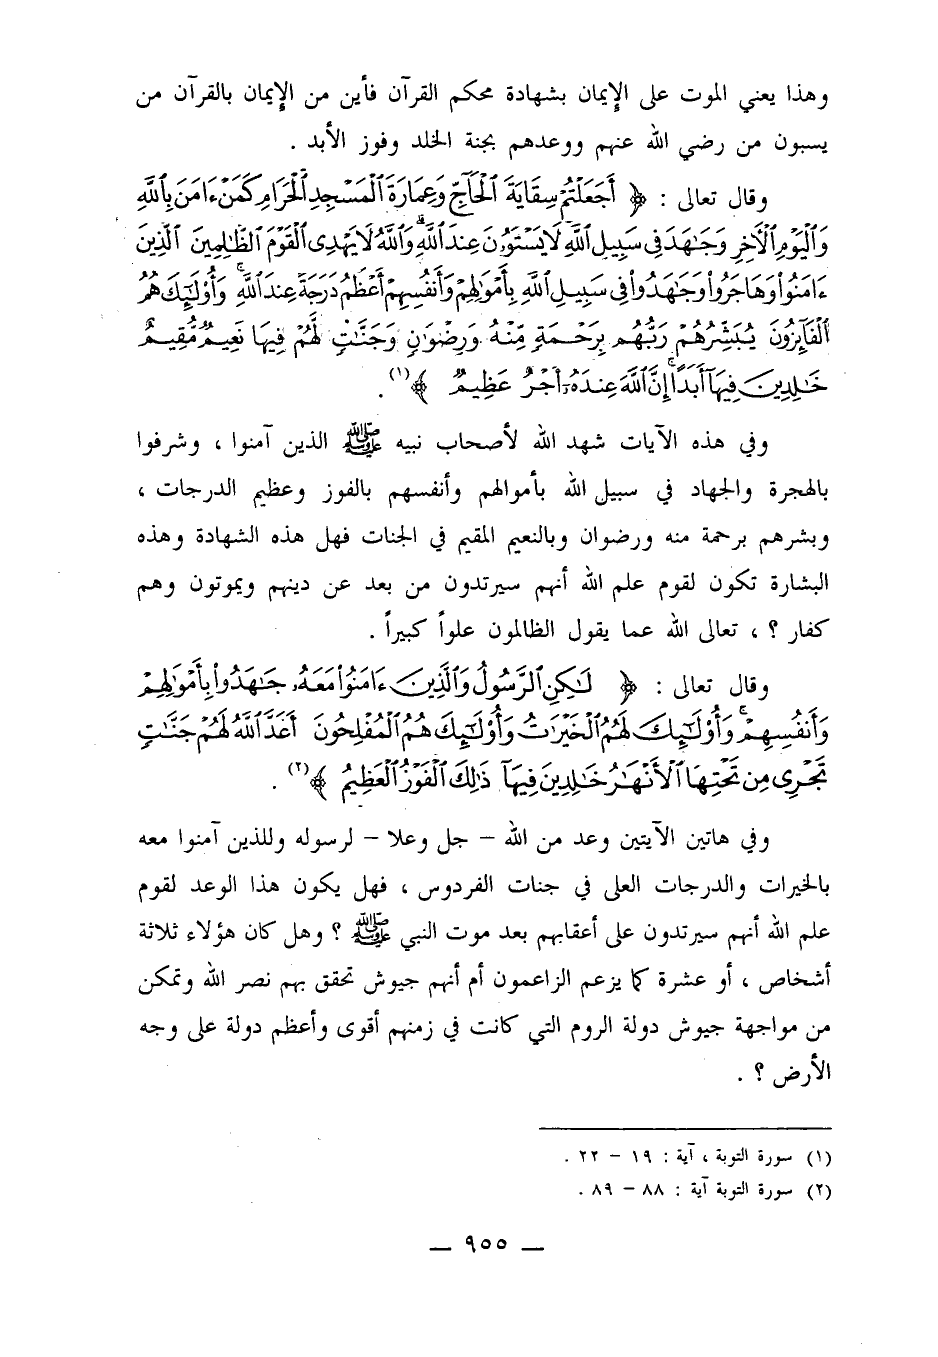 وهذا يعني الموت على الإيمان بشهادة محكم القرآن فأين من الإيمان بالقرآن من
يسبون من رضي الله عنهم ووعدهم بجنة الخلد وفوز الأبد .
وقال تعالى : ﴿ أَجَعَلْتُمْ سِقَايَةَ ٱلْحَآجِّ وَعِمَارَةَ ٱلْمَسْجِدِ ٱلْحَرَامِ كَمَنْ ءَامَنَ بِٱللَّهِ
وَٱلْيَوْمِ ٱلْـَٔاخِرِ وَجَـٰهَدَ فِى سَبِيلِ ٱللَّهِ لَا يَسْتَوُۥنَ عِندَ ٱللَّهِ ۗ وَٱللَّهُ لَا يَهْدِى ٱلْقَوْمَ ٱلظَّـٰلِمِينَ ٱلَّذِينَ
ءَامَنُوا۟ وَهَاجَرُوا۟ وَجَـٰهَدُوا۟ فِى سَبِيلِ ٱللَّهِ بِأَمْوَٰلِهِمْ وَأَنفُسِهِمْ أَعْظَمُ دَرَجَةً عِندَ ٱللَّهِ ۚ وَأُو۟لَـٰٓئِكَ هُمُ
ٱلْفَآئِزُونَ يُبَشِّرُهُمْ رَبُّهُم بِرَحْمَةٍ مِّنْهُ وَرِضْوَٰنٍ وَجَنَّـٰتٍ لَّهُمْ فِيهَا نَعِيمٌ مُّقِيمٌ
خَـٰلِدِينَ فِيهَآ أَبَدًا ۚ إِنَّ ٱللَّهَ عِندَهُۥٓ أَجْرٌ عَظِيمٌ ﴾(١) .
وفي هذه الآيات شهد الله لأصحاب نبيه ﷺ الذين آمنوا ، وشرفوا
بالهجرة والجهاد في سبيل الله بأموالهم وأنفسهم بالفوز وعظيم الدرجات ،
وبشرهم برحمة منه ورضوان وبالنعيم المقيم في الجنات فهل هذه الشهادة وهذه
البشارة تكون لقوم علم الله أنهم سيرتدون من بعد عن دينهم ويموتون وهم
كفار ؟ ، تعالى الله عما يقول الظالمون علواً كبيراً .
وقال تعالى : ﴿ لَـٰكِنِ ٱلرَّسُولُ وَٱلَّذِينَ ءَامَنُوا۟ مَعَهُۥ جَـٰهَدُوا۟ بِأَمْوَٰلِهِمْ
وَأَنفُسِهِمْ ۚ وَأُو۟لَـٰٓئِكَ لَهُمُ ٱلْخَيْرَٰتُ وَأُو۟لَـٰٓئِكَ هُمُ ٱلْمُفْلِحُونَ أَعَدَّ ٱللَّهُ لَهُمْ جَنَّـٰتٍ
تَجْرِى مِن تَحْتِهَا ٱلْأَنْهَـٰرُ خَـٰلِدِينَ فِيهَا ۚ ذَٰلِكَ ٱلْفَوْزُ ٱلْعَظِيمُ ﴾(٢) .
وفي هاتين الآيتين وعد من الله – جل وعلا – لرسوله وللذين آمنوا معه
بالخيرات والدرجات العلى في جنات الفردوس ، فهل يكون هذا الوعد لقوم
علم الله أنهم سيرتدون على أعقابهم بعد موت النبي ﷺ ؟ وهل كان هؤلاء ثلاثة
أشخاص ، أو عشرة كما يزعم الزاعمون أم أنهم جيوش تحقق بهم نصر الله وتمكن
من مواجهة جيوش دولة الروم التي كانت في زمنهم أقوى وأعظم دولة على وجه
الأرض ؟ .
(١) سورة التوبة ، آية : ١٩ – ٢٢ .
(٢) سورة التوبة آية : ٨٨ – ٨٩ .
— ٩٥٥ —